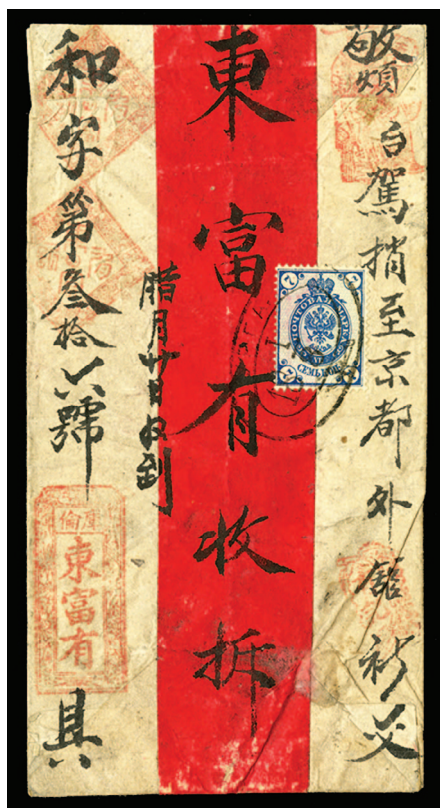 敬煩
台駕捎至京都外舘祈交
東富有收拆
臘月廿日收到
和字第叁拾六號
具
庫倫
東富有
7 7
ПОЧТОВАЯ МАРКА
СЕМЬ КОП.